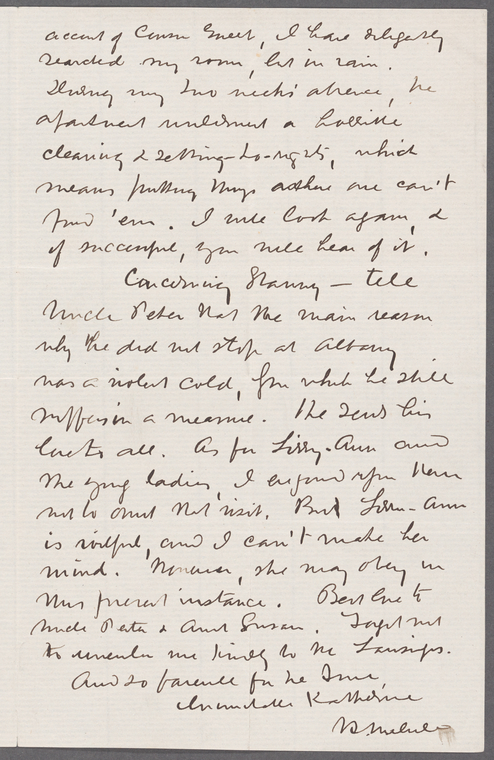 account of Cousin Guert, I have diligently
searched my room, but in vain.
During my two weeks' absence, the
apartment underwent a horrible
clearing & setting-to-rights, which
means putting things where one can't
find 'em. I will look again, &
if successful, you will hear of it.
Concerning Stanny — tell
Uncle Peter that the main reason
why he did not stop at Albany
was a violent cold, from which he still
suffers in a measure. He sends his
love to all. As for Lizzy-Ann and
the young ladies, I enjoined upon them
not to omit that visit. But Lizzy-Ann
is wilful, and I can't make her
mind. However, she may obey in
this present instance. Best love to
Uncle Peter & Aunt Susan. Forget not
to remember me kindly to the Lansings.
And so farewell for the time,
Inimitable Katherine
H. Melville